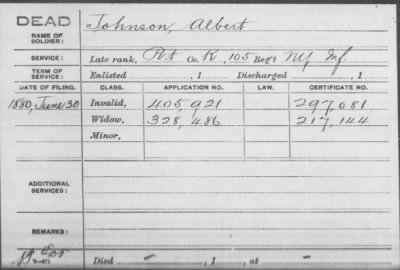 DEAD
NAME OF SOLDIER: Johnson, Albert
SERVICE: Late rank, Pvt Co. K, 105 Reg't NY Inf.
TERM OF SERVICE: Enlisted , 1 Discharged , 1
DATE OF FILING. CLASS. APPLICATION NO. LAW. CERTIFICATE NO.
1880, June 30 Invalid, 405,921 297,081
Widow, 328,486 217,144
Minor,
ADDITIONAL SERVICES:
REMARKS:
Died — , 1 , at —